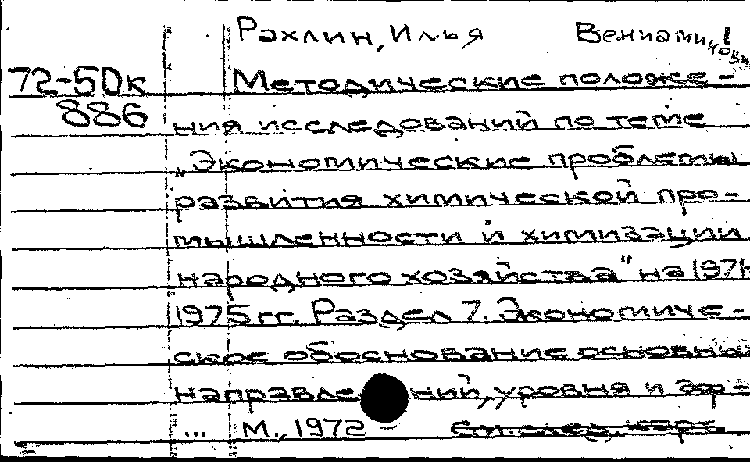 Рахлин, Илья Вениаминович
72-50к Методические положе-
886 ния исследований по теме
„Экономические проблемы
развития химической про-
мышленности и химизации
народного хозяйства" на 1971-
1975 гг. Раздел 7. Экономиче-
ское обоснование основных
направлений, уровня и эф-
... М., 1972 -